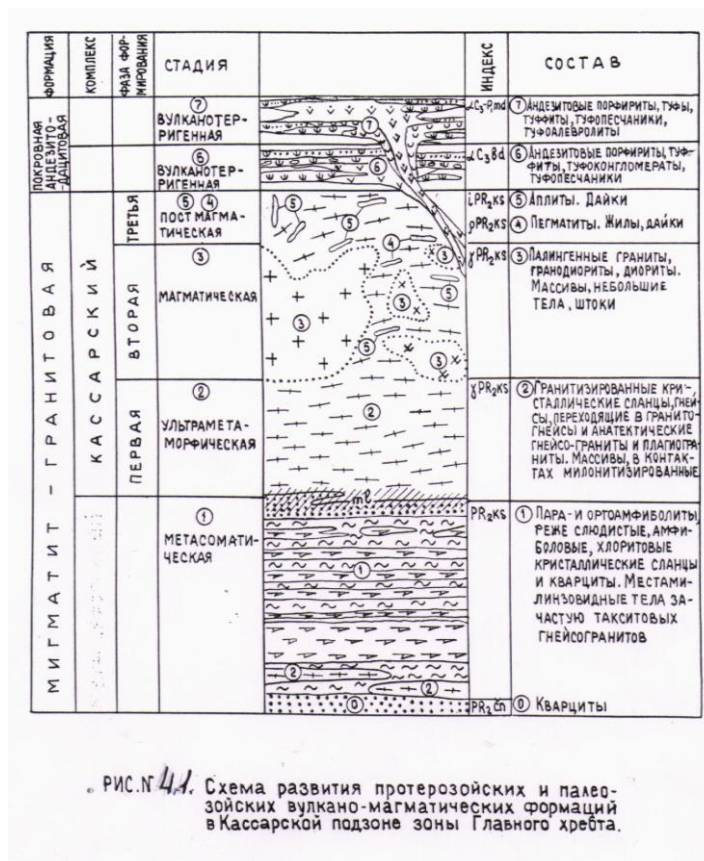 ФОРМАЦИЯ
КОМПЛЕКС
ФАЗА ФОР-
МИРОВАНИЯ
СТАДИЯ
ИНДЕКС
СОСТАВ
ПОКРОВНАЯ
АНДЕЗИТО-
-ДАЦИТОВАЯ
⑦
ВУЛКАНОТЕР-
РИГЕННАЯ
7
αC₃-P₁md
⑦ АНДЕЗИТОВЫЕ ПОРФИРИТЫ, ТУФЫ,
ТУФФИТЫ, ТУФОПЕСЧАНИКИ,
ТУФОАЛЕВРОЛИТЫ
⑥
ВУЛКАНОТЕР-
РИГЕННАЯ
⑥
αC₃Bd
⑥ АНДЕЗИТОВЫЕ ПОРФИРИТЫ, ТУФ-
ФИТЫ, ТУФОКОНГЛОМЕРАТЫ,
ТУФОПЕСЧАНИКИ
МИГМАТИТ - ГРАНИТОВАЯ
КАССАРСКИЙ
ТРЕТЬЯ
⑤ ④
ПОСТМАГМА-
ТИЧЕСКАЯ
⑤ ⑤
④
iPR₂ks
ρPR₂ks
⑤ АПЛИТЫ. ДАЙКИ
④ ПЕГМАТИТЫ. ЖИЛЫ, ДАЙКИ
ВТОРАЯ
③
МАГМАТИЧЕСКАЯ
③
③ ⑤
③
⑤
③
γPR₂ks
③ ПАЛИНГЕННЫЕ ГРАНИТЫ,
ГРАНОДИОРИТЫ, ДИОРИТЫ.
МАССИВЫ, НЕБОЛЬШИЕ
ТЕЛА, ШТОКИ
ПЕРВАЯ
②
УЛЬТРАМЕТА-
МОРФИЧЕСКАЯ
②
ml
γPR₂ks
② ГРАНИТИЗИРОВАННЫЕ КРИ-
СТАЛЛИЧЕСКИЕ СЛАНЦЫ, ГНЕЙ-
СЫ, ПЕРЕХОДЯЩИЕ В ГРАНИТО-
ГНЕЙСЫ И АНАТЕКТИЧЕСКИЕ
ГНЕЙСО-ГРАНИТЫ И ПЛАГИОГРА-
НИТЫ. МАССИВЫ, В КОНТАК-
ТАХ МИЛОНИТИЗИРОВАННЫЕ
①
МЕТАСОМАТИ-
ЧЕСКАЯ
①
②
②
PR₂ks
① ПАРА- И ОРТОАМФИБОЛИТЫ,
РЕЖЕ СЛЮДИСТЫЕ, АМФИ-
БОЛОВЫЕ, ХЛОРИТОВЫЕ
КРИСТАЛЛИЧЕСКИЕ СЛАНЦЫ
И КВАРЦИТЫ. МЕСТАМИ-
ЛИНЗОВИДНЫЕ ТЕЛА ЗА-
ЧАСТУЮ ТАКСИТОВЫХ
ГНЕЙСОГРАНИТОВ
0
PR₂čn
0 КВАРЦИТЫ
РИС.N 4.1. Схема развития протерозойских и палео-
зойских вулкано-магматических формаций
в Кассарской подзоне зоны Главного хребта.